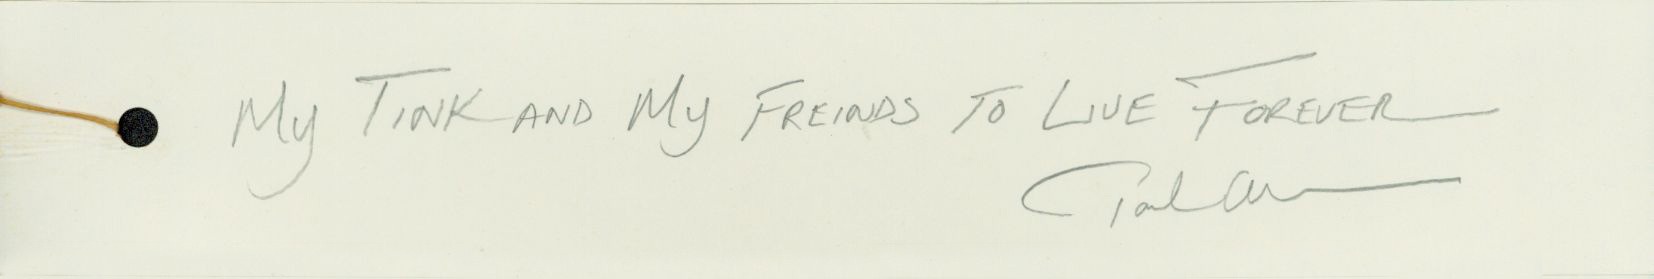 My TINK AND My FREINDS TO LIVE FOREVER